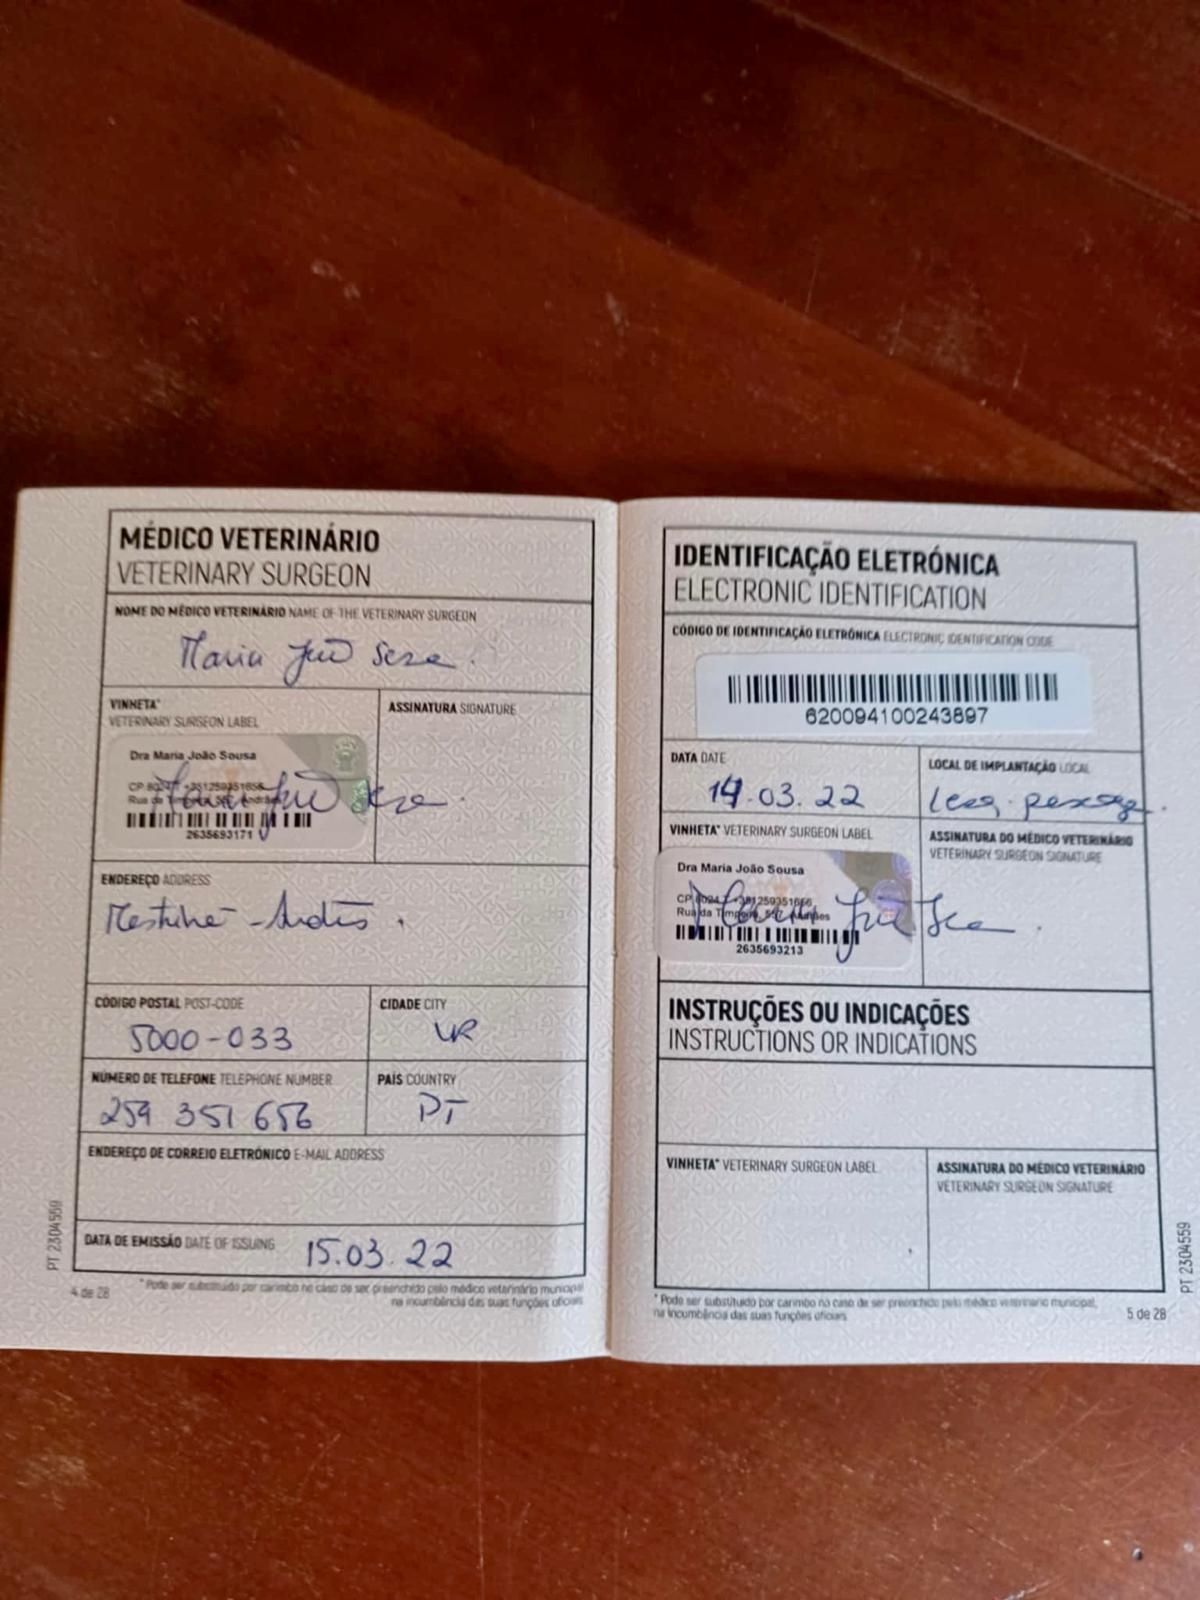 MÉDICO VETERINÁRIO
VETERINARY SURGEON
NOME DO MÉDICO VETERINÁRIO NAME OF THE VETERINARY SURGEON
Maria
VINHETA*
VETERINARY SURGEON LABEL
ASSINATURA SIGNATURE
Dra Maria João Sousa
CP
Rua da
2635693171
ENDEREÇO ADDRESS
CÓDIGO POSTAL POST-CODE
5000-033
CIDADE CITY
VR
NÚMERO DE TELEFONE TELEPHONE NUMBER
259 351 656
PAÍS COUNTRY
PT
ENDEREÇO DE CORREIO ELETRÓNICO E-MAIL ADDRESS
DATA DE EMISSÃO DATE OF ISSUING
15.03.22
* Pode ser substituído por carimbo no caso de ser preenchido pelo médico veterinário municipal
na incumbência das suas funções oficiais
4 de 28
PT 2304559
IDENTIFICAÇÃO ELETRÓNICA
ELECTRONIC IDENTIFICATION
CÓDIGO DE IDENTIFICAÇÃO ELETRÓNICA ELECTRONIC IDENTIFICATION CODE
620094100243897
DATA DATE
14.03.22
LOCAL DE IMPLANTAÇÃO LOCAL
VINHETA* VETERINARY SURGEON LABEL
ASSINATURA DO MÉDICO VETERINÁRIO
VETERINARY SURGEON SIGNATURE
Dra Maria João Sousa
CP
Rua da
2635693213
INSTRUÇÕES OU INDICAÇÕES
INSTRUCTIONS OR INDICATIONS
VINHETA* VETERINARY SURGEON LABEL
ASSINATURA DO MÉDICO VETERINÁRIO
VETERINARY SURGEON SIGNATURE
* Pode ser substituído por carimbo no caso de ser preenchido pelo médico veterinário municipal,
na incumbência das suas funções oficiais
5 de 28
PT 2304559